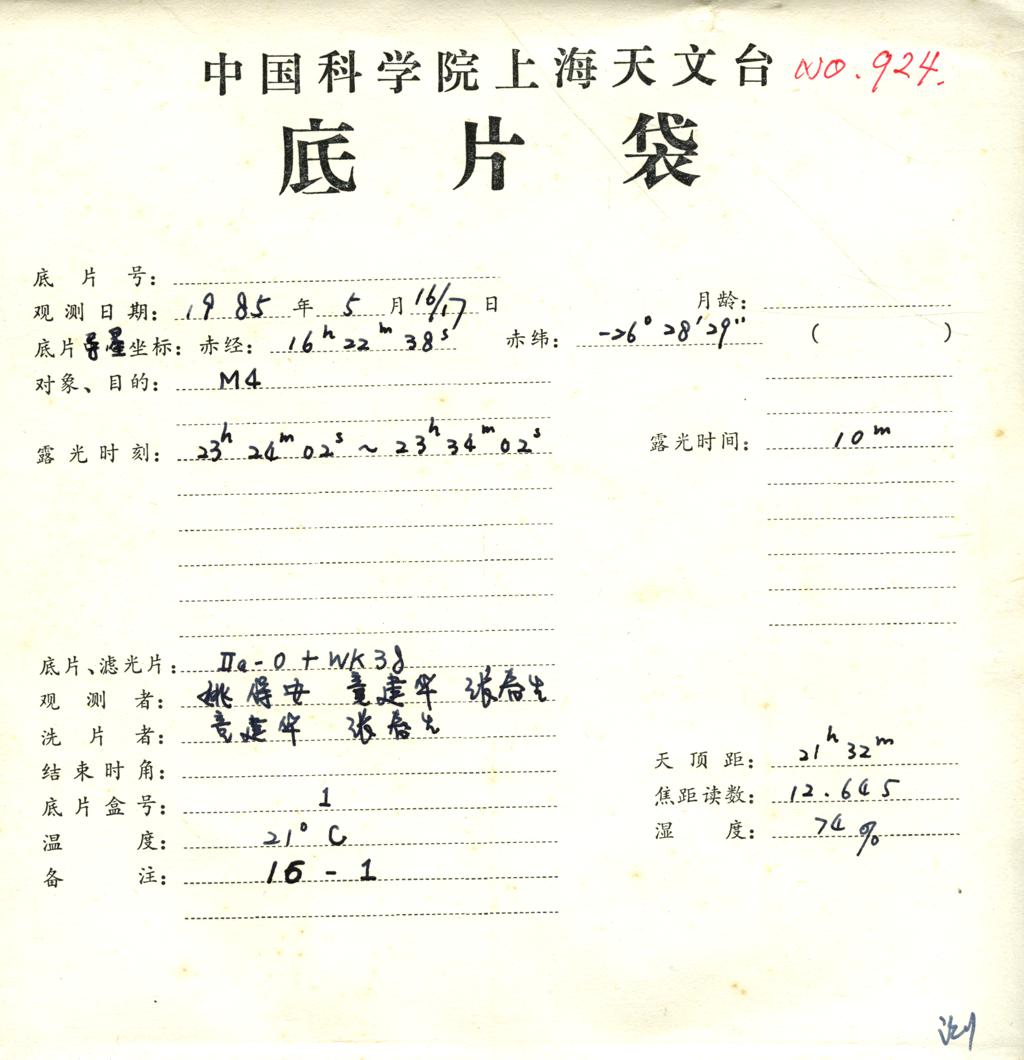 中国科学院上海天文台 NO.924.
底片袋
底片号:
观测日期: 1985年5月16/17日 月龄:
底片导星坐标: 赤经: 16h 22m 38s 赤纬: -26° 28′ 29″ ( )
对象、目的: M4
露光时刻: 23h 24m 02s ~ 23h 34m 02s 露光时间: 10m
底片、滤光片: IIa-O + WK38
观测者: 姚保安 童建华 张春生
洗片者: 童建华 张春生
结束时角: 天顶距: 21h 32m
底片盒号: 1 焦距读数: 12.645
温度: 21°C 湿度: 74%
备注: 15-1